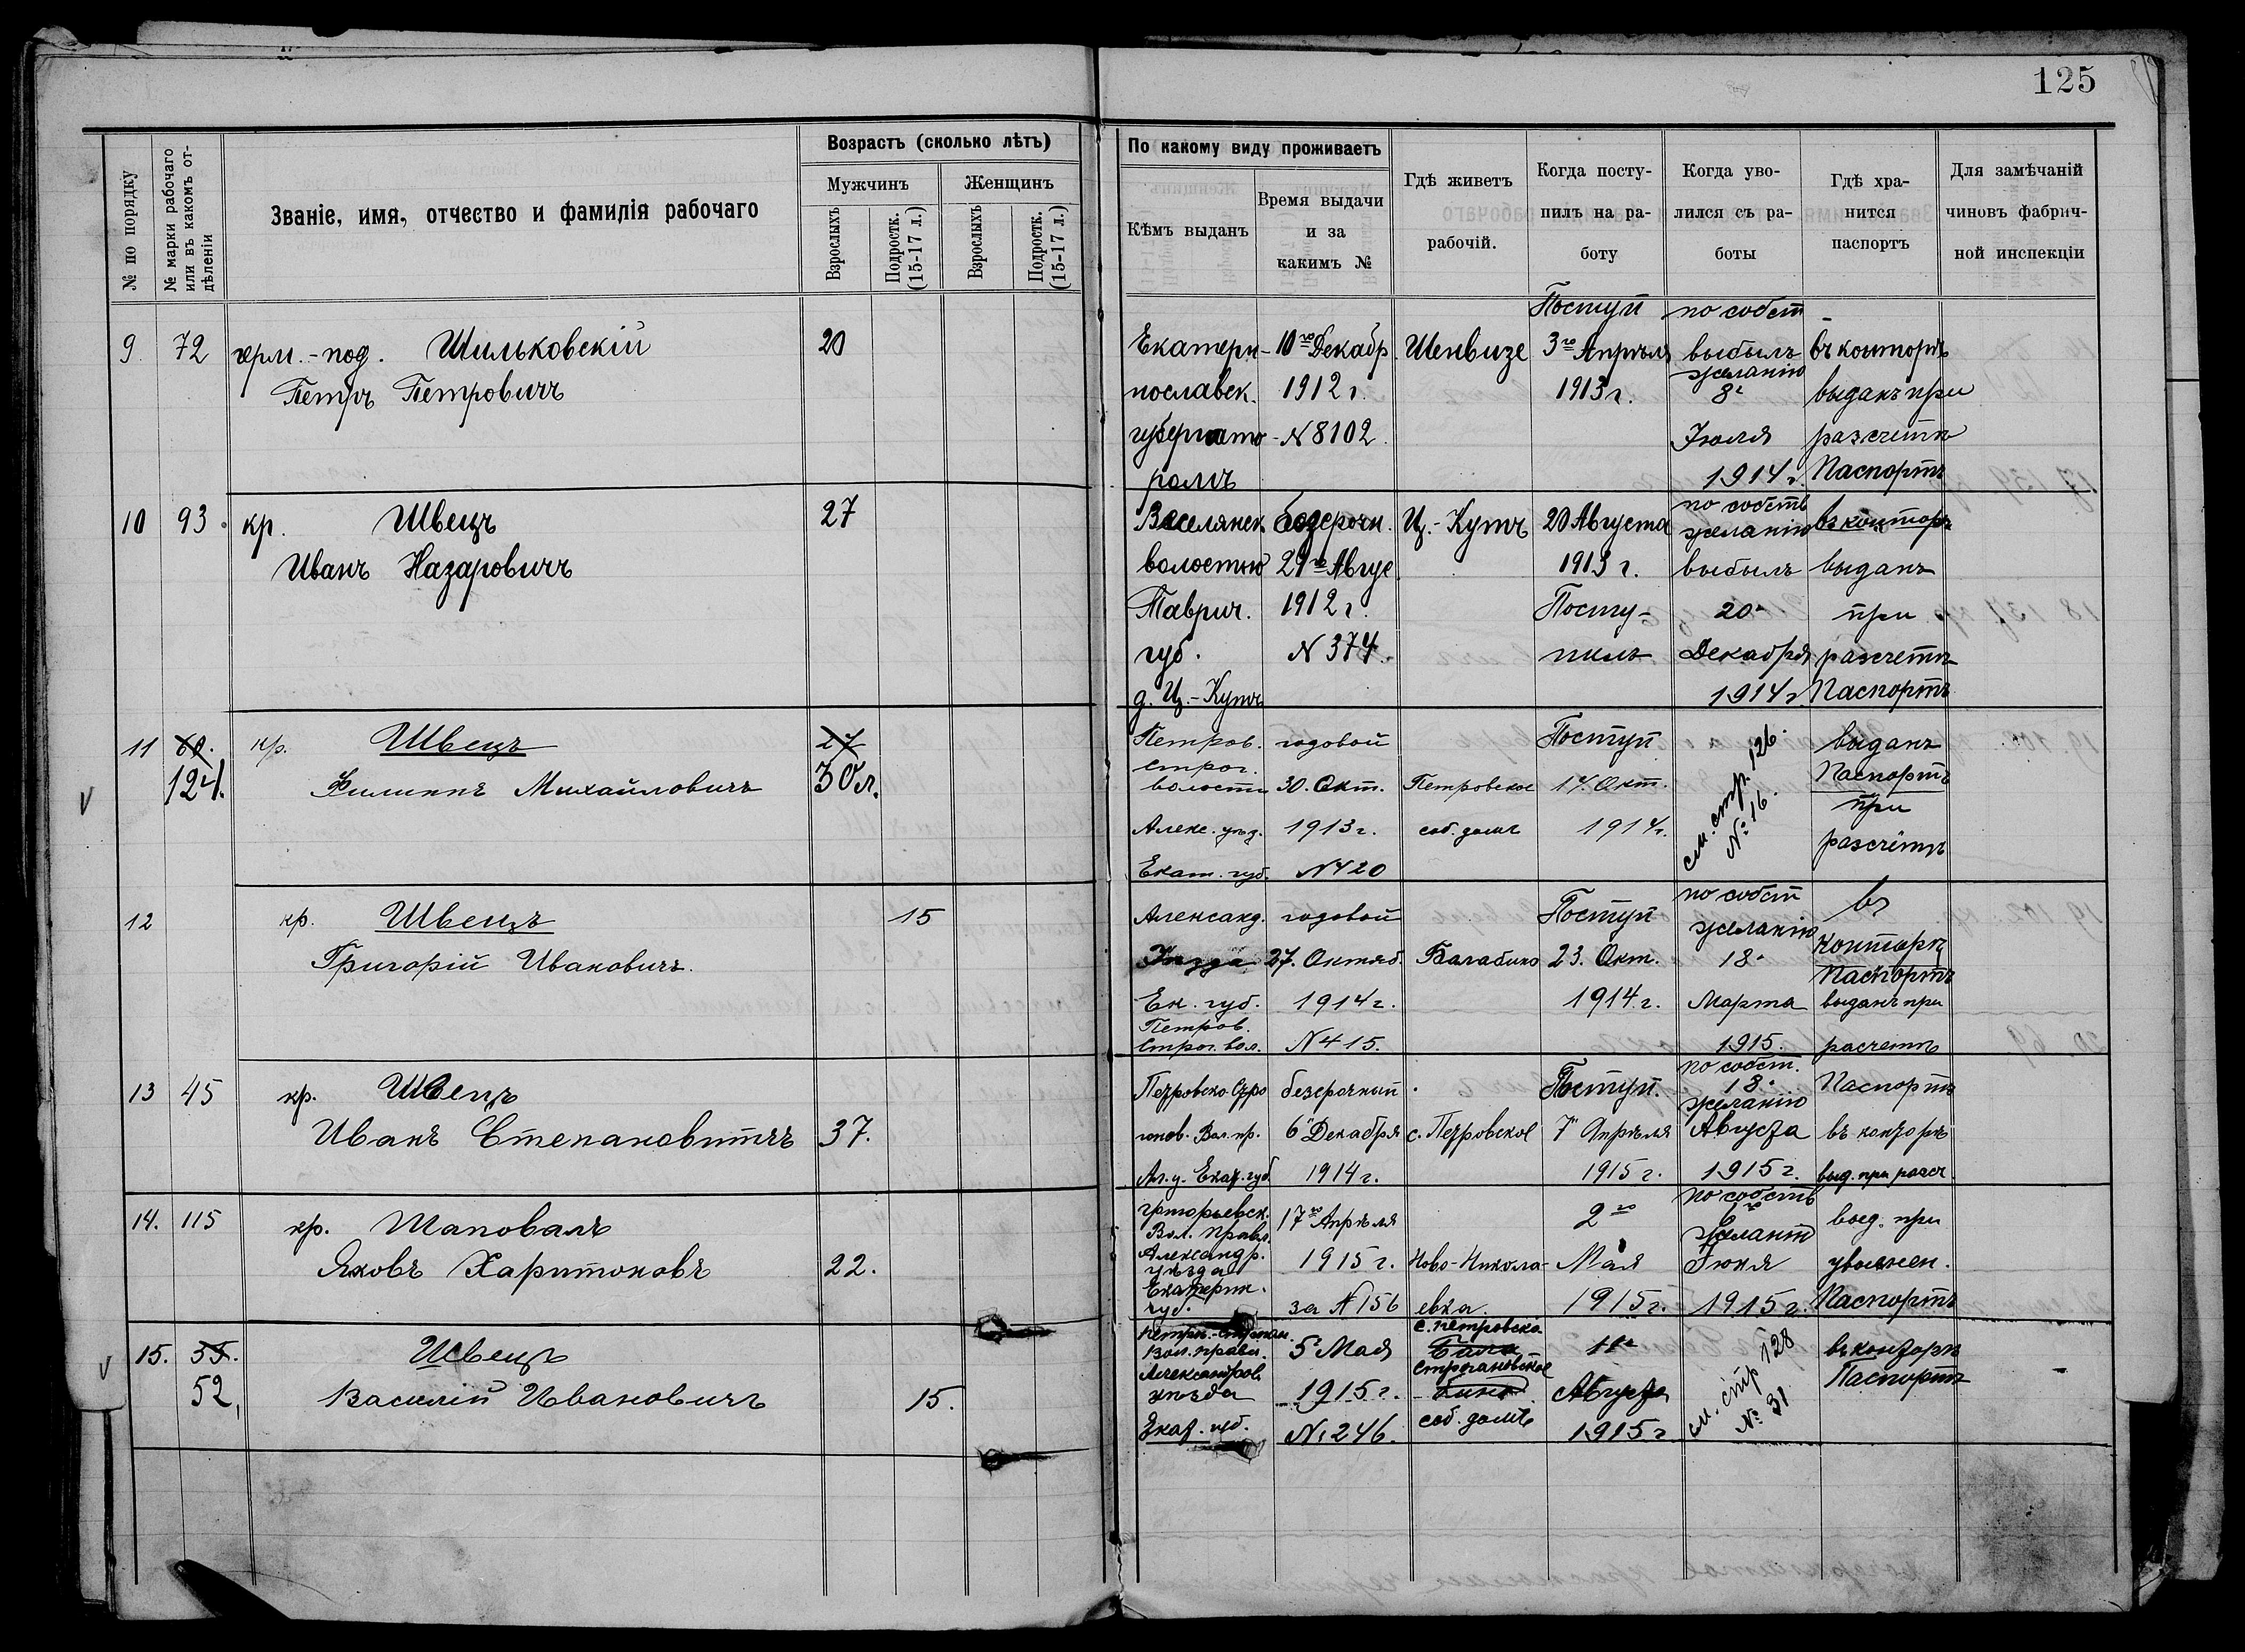 125
№ по порядку
№ марки рабочаго или въ какомъ отдѣленіи
Званіе, имя, отчество и фамилія рабочаго
Возрастъ (сколько лѣтъ)
Мужчинъ
Женщинъ
Взрослыхъ
Подростк. (15-17 л.)
Взрослыхъ
Подростк. (15-17 л.)
По какому виду проживаетъ
Кѣмъ выданъ
Время выдачи
и за
какимъ №
Гдѣ живетъ
рабочій.
Когда посту-
пилъ на ра-
боту
Когда уво-
лился съ ра-
боты
Гдѣ хра-
нится
паспортъ
Для замѣчаній
чиновъ фабрич-
ной инспекціи
9 72 герм.-под. Шильковскій 20
Петръ Петровичъ
Екатери-
нославск.
губернато-
ромъ
10го Декабр.
1912 г.
N 8102
Шенвизе
Поступ
3го Апрѣля
1913 г.
по собст
выбылъ
желанію
8го
Іюля
1914 г.
въ конторѣ
выданъ при
разсчетѣ
Паспортъ
10 93 кр. Швецъ 27
Иванъ Назаровичъ
волостью
Таврич.
губ.
д. Ц.-Кутъ
безсрочн.
29го Авгус
1912 г.
N 374.
Ц.-Кутъ
20 Августа
1913 г.
Посту-
пилъ
по собств
желанію
выбылъ
20го
Декабря
1914 г.
въ конторѣ
выданъ
при
разсчетѣ
Паспортъ
11 60. кр. Швецъ 27
124. Филиппъ Михайловичъ 30 л.
Петров.
Строг.
волости
Алекс. уѣзд.
Екат. губ.
годовой
30. Окт.
1913 г.
N 420
Петровское
соб. домъ
Поступ
14. Окт.
1914 г.
см. стр. 126.
№ 16.
выданъ
Паспортъ
при
разсчётѣ
12 кр. Швецъ 15
Григорій Ивановичъ.
Александ.
Уѣзда
Ек. губ.
Петров.
Строг. вол.
годовой
27. Октяб.
1914 г.
N 415.
Балабино
Поступ
23. Окт.
1914 г.
по собст
желанію
18го
Марта
1915.
въ
Конторѣ
Паспортъ
выданъ при
расчетѣ
13 45 кр. Швецъ
Иванъ Степановитчъ 37.
Петровско-Стро
гонов. Вол. пр.
Ал. у. Екат. губ.
безсрочный
6" Декабря
1914 г.
с. Петровское
Поступ.
7" Апрѣля
1915 г.
по собст.
18го
желанію
Августа
1915 г.
Паспортъ
въ конторѣ
выд. при разсч.
14. 115 кр. Шаповалъ
Яковъ Харитоновъ 22.
Григорьевск.
Вол. Правл.
Александр.
уѣзда
Екатерин.
губ.
17го Апрѣля
1915 г.
за N 156
Ново-Никола-
евка.
2го
Мая
1915 г.
по собств
желанію
Іюня
1915 г.
выд. при
увольнен.
Паспортъ
15. 55. Швецъ
52, Василій Ивановичъ 15.
Вол. правл.
Александров.
уѣзда
Екат. губ.
5го Мая
1915 г.
N. 246.
с. Петровско
Строгановское
соб. домъ
11го
Августа
1915 г.
см. стр 128
№ 31
въ конторѣ
Паспортъ